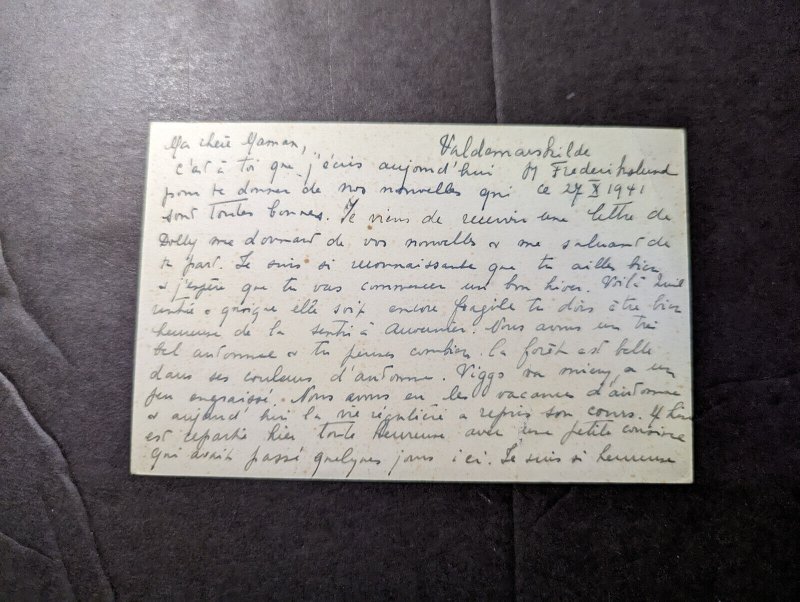 Ma chère Maman, Valdemarskilde
c'est à toi que j'écris aujourd'hui Frederikslund
pour te donner de nos nouvelles qui ce 27 X 1941
sont toutes bonnes. Je viens de recevoir une lettre de
Dolly me donnant de vos nouvelles & me saluant de
ta part. Je suis si reconnaissante que tu ailles bien
& j'espère que tu vas commencer un bon hiver. Voilà
rentrée & quoique elle soit encore fragile tu dois être bien
heureuse de la sentir à Auvernier. Nous avons un très
bel automne & tu penses combien la forêt est belle
dans ses couleurs d'automne. Viggo va mieux a un
peu engraissé. Nous avons eu les vacances d'automne
& aujourd'hui la vie régulière a repris son cours.
est repartie hier toute heureuse avec une petite cousine
qui avait passé quelques jours ici. Je suis si heureuse